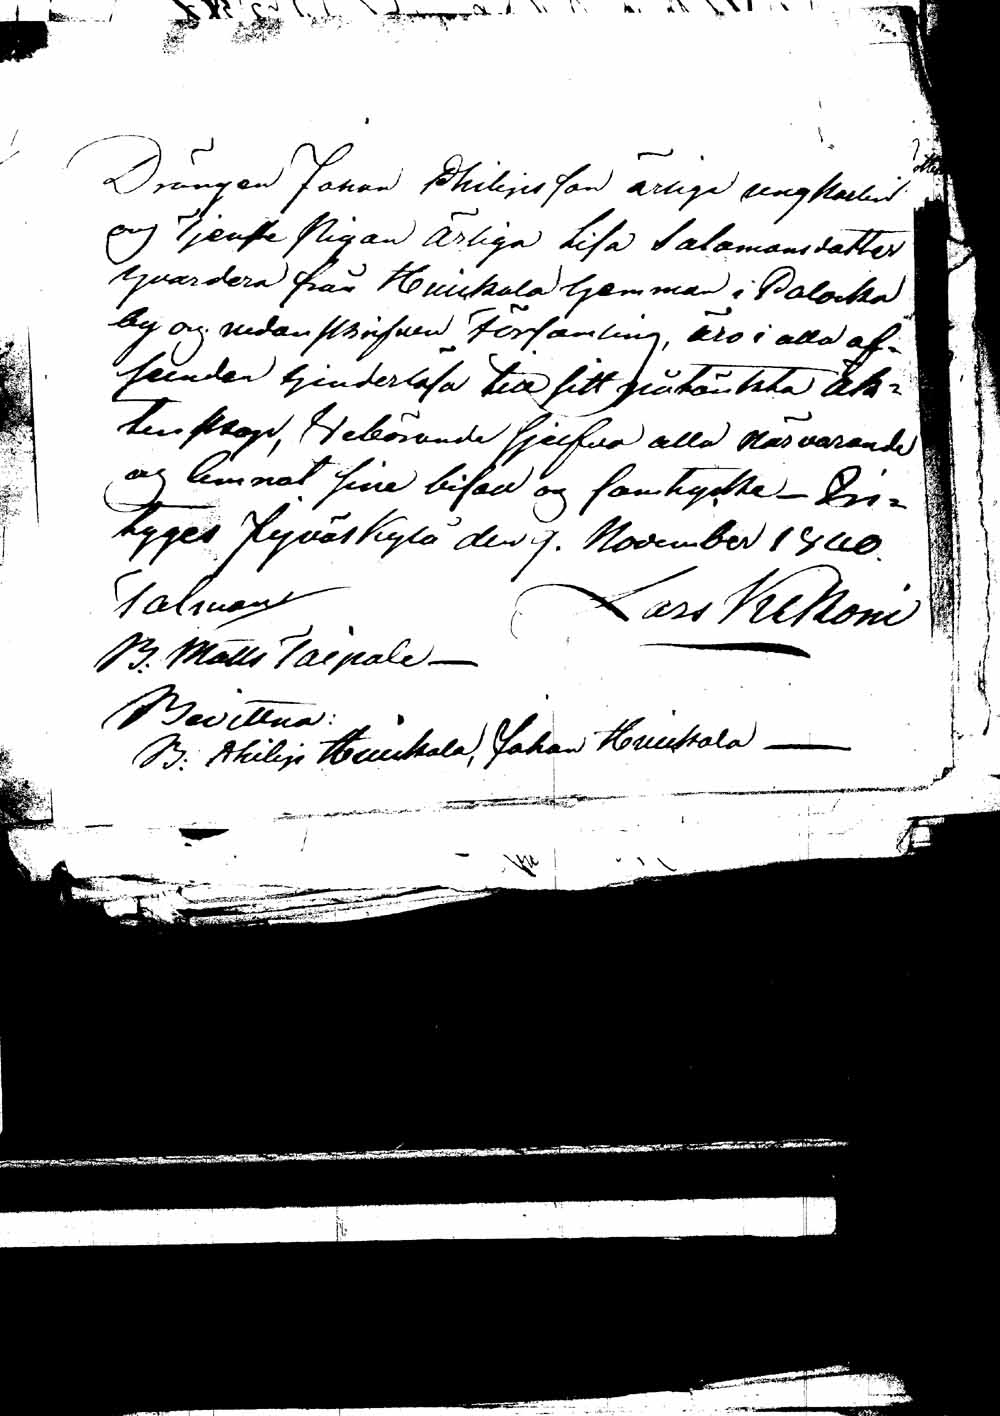 Drängen Johan Philipsson ärliga ungkarlen
og Tjenste Pigan Ärliga Lisa Salamonsdotter
hvardera från Huikala Hemman i Palocka
by og nedanskrifven Församling, äro i alla af-
seenden hinderlösa till sitt påtänkta äk=
tenskap, Vebörande sjelfva alla närvarande
og lemnat sine bifall og samtycke – In=
tyges Jyväskylä den 9. November 1840.
Talman Lars Kekoni
B. Matts Taipale —
Bevittna:
B. Philip Huikala, Johan Huikala —